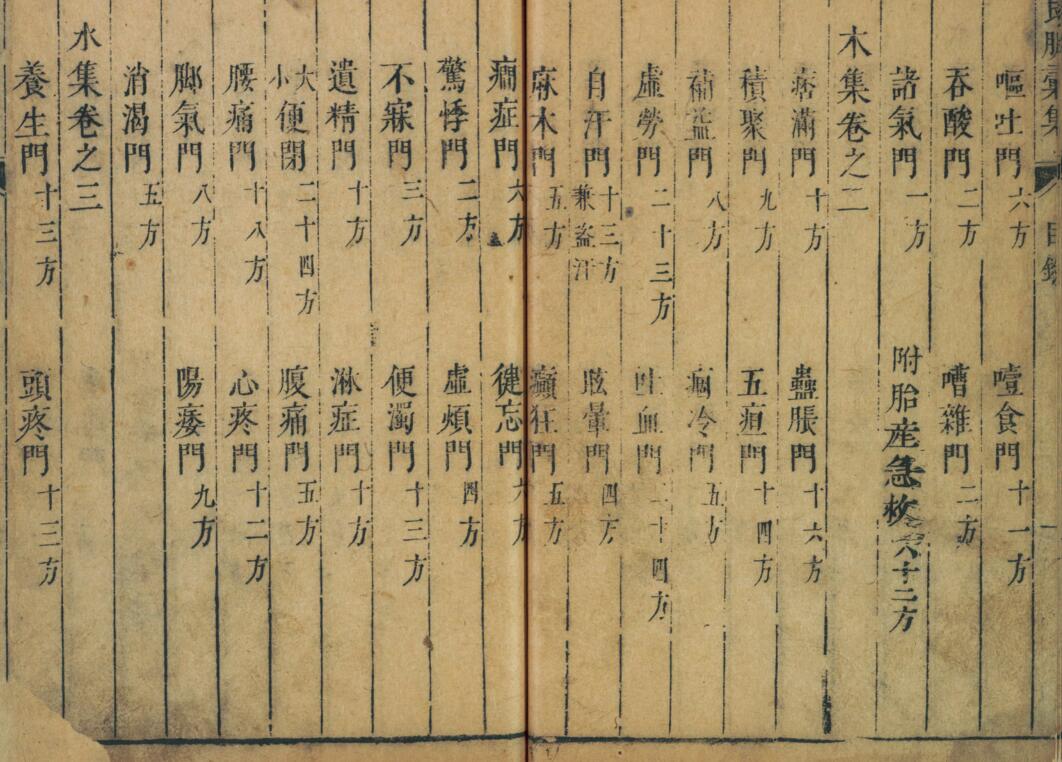 嘔吐門六方　噎食門十一方
吞酸門二方　嘈雜門二方
諸氣門一方　附胎産急救六十二方
木集卷之二
痞滿門十方　蠱脹門十六方
積聚門九方　五疸門十四方
補益門八方　痼冷門五方
虛勞門二十三方　吐血門二十四方
自汗門十三方兼盗汗　眩暈門四方
麻木門五方　癲狂門五方
癇症門六方　健忘門六方
驚悸門二方　虛煩門四方
不寐門三方　便濁門十三方
遺精門十方　淋症門十方
大小便閉二十四方　腹痛門五方
腰痛門十八方　心疼門十二方
脚氣門八方　陽痿門九方
消渴門五方
水集卷之三
養生門十三方　頭疼門十三方